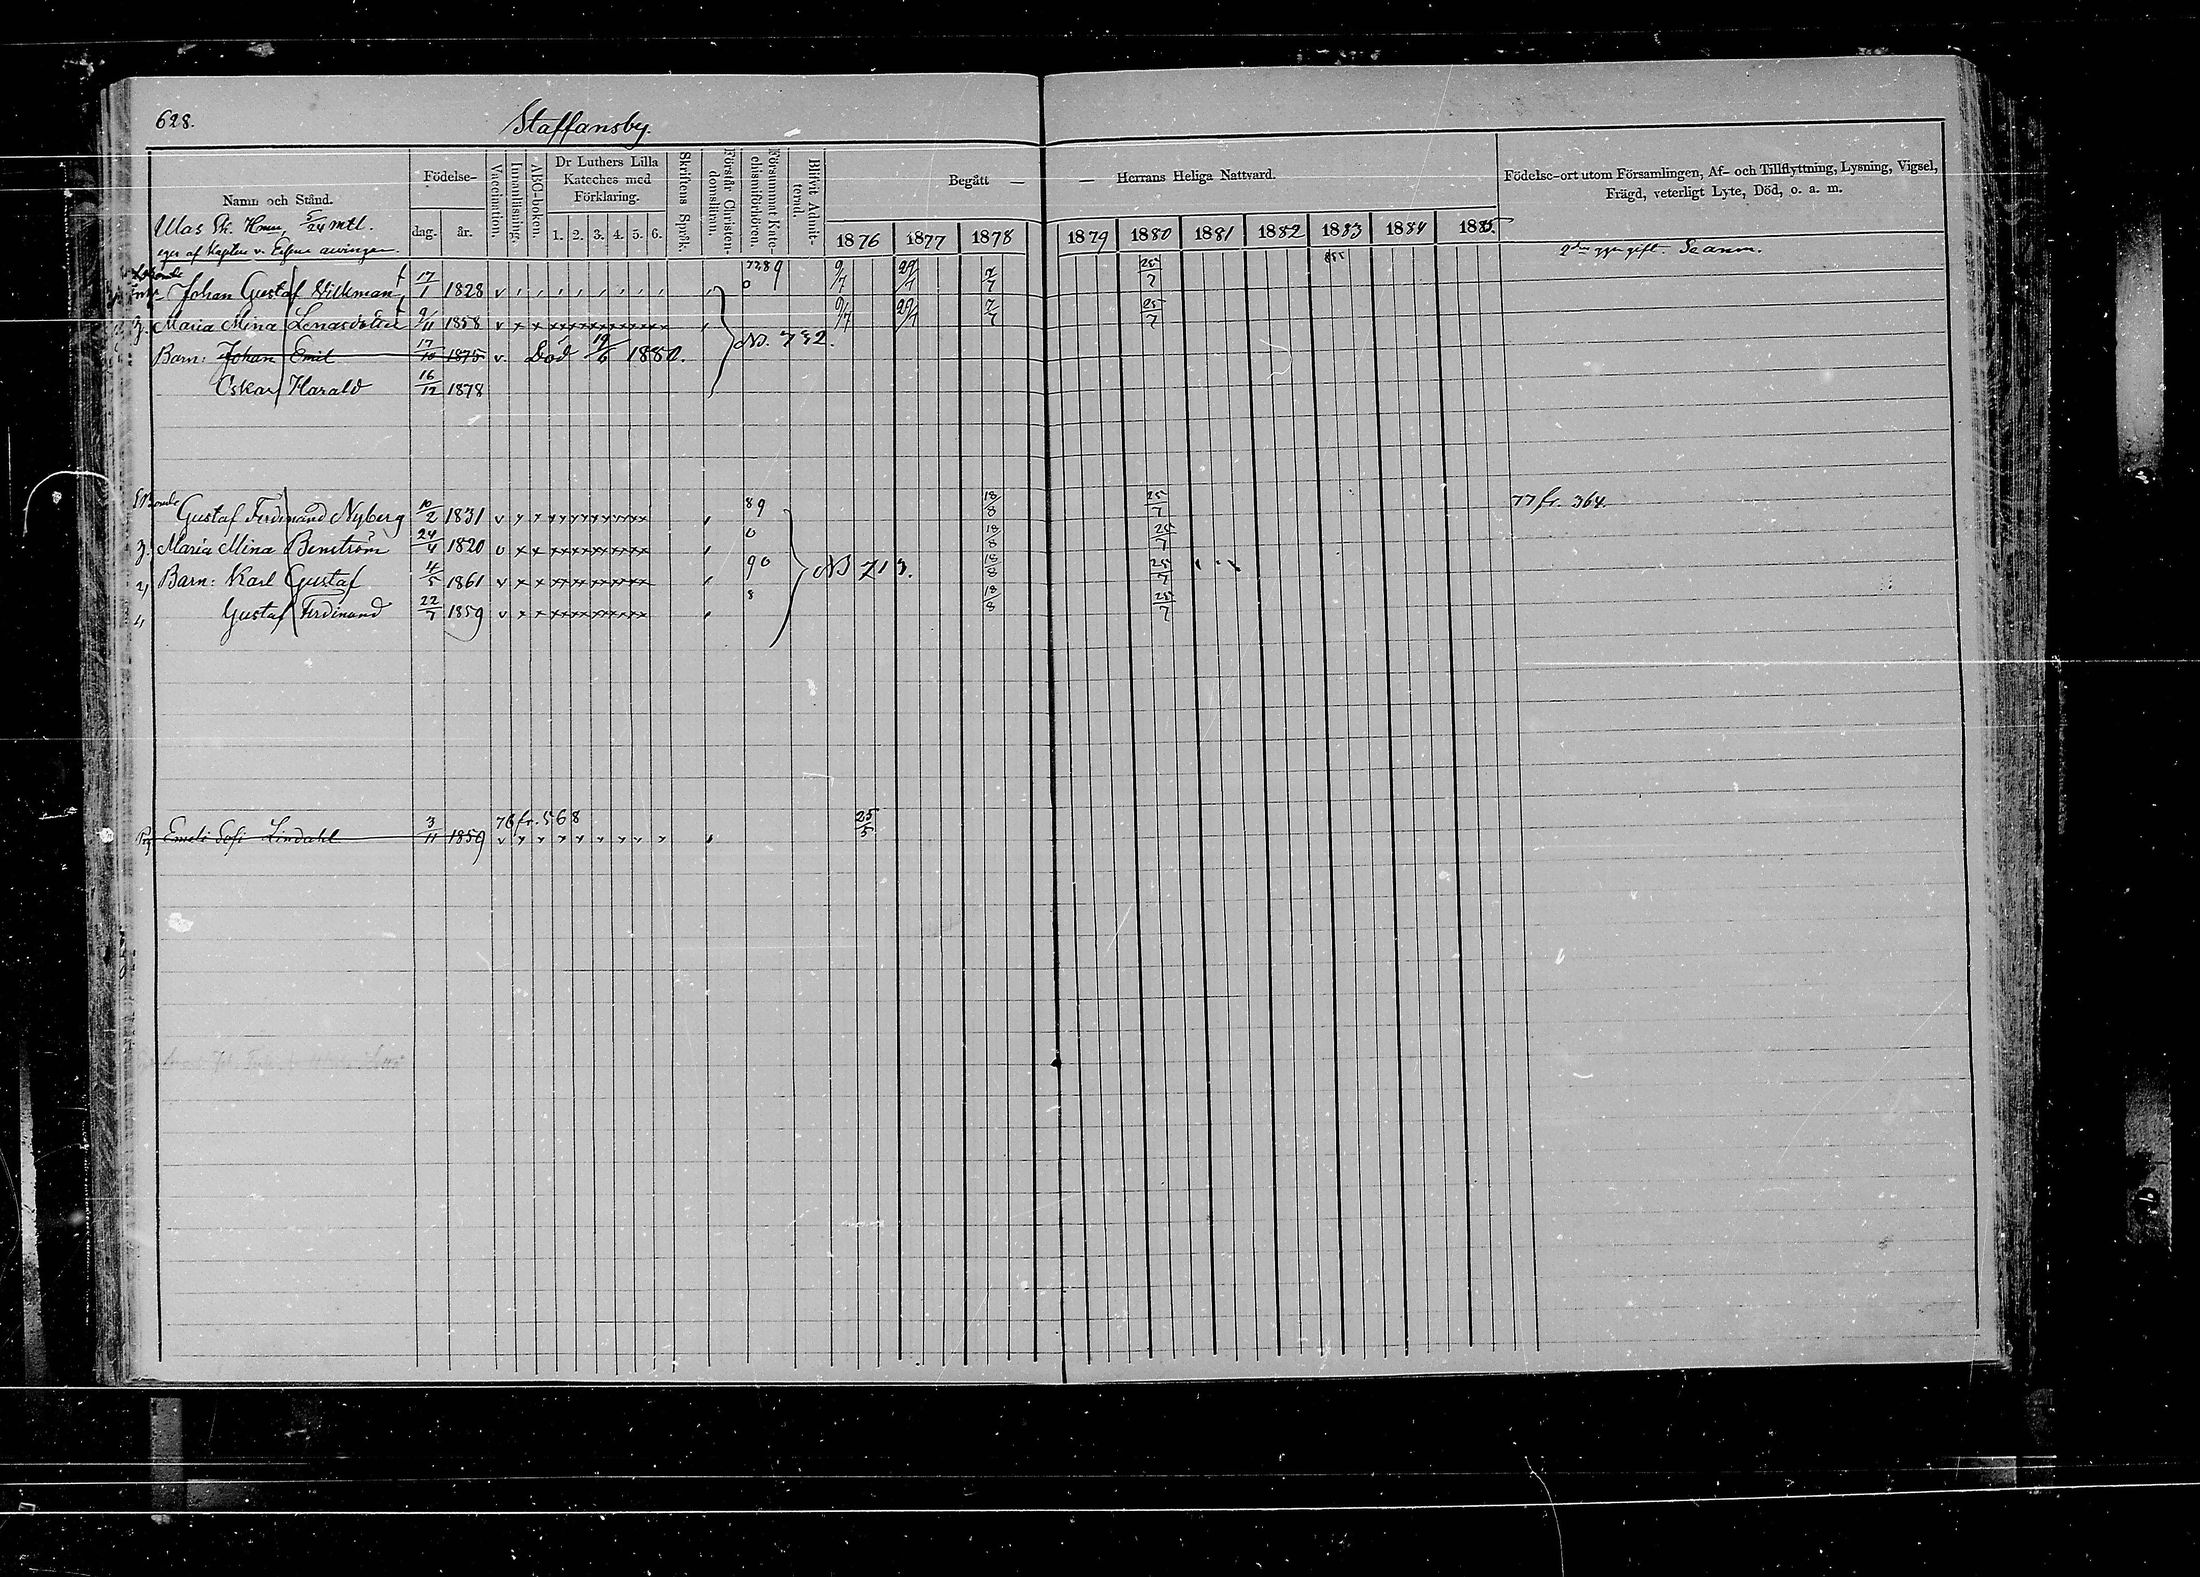 628.
Staffansby.
Namn och Stånd.
Födelse-
dag. år.
Vaccination.
Innanläsning.
ABC-boken.
Dr Luthers Lilla
Kateches med
Förklaring.
1. 2. 3. 4. 5. 6.
Skriftens Språk.
Förstår Christen-
domsläran.
Försummat Kate-
chismiförhören.
Blifvit Admit-
terad.
Begått —
— Herrans Heliga Nattvard.
1876 1877 1878 1879 1880 1881 1882 1883 1884 1885
Födelse-ort utom Församlingen, Af- och Tillflyttning, Lysning, Vigsel,
Frägd, veterligt Lyte, Död, o. a. m.
5/24 mtl.
gift. Se anm.
Johan Gustaf 17/1 1828 v 9/7 29/7 7/7 25/7
Maria Mina 9/11 1858 v 9/7 29/7 7/7 25/7
Barn: Johan Emil 17/10 1875 v. Död 19/6 1880. No. 732.
Oskar Harald 16/12 1878
Gustaf Ferdinand Nyberg 10/2 1831 v 89 18/8 25/7 77 fr. 364.
Maria Mina 24/4 1820 v 0 18/8 25/7
Barn: Karl Gustaf 4/5 1861 v 90 No 713. 18/8 25/7
Gustaf Ferdinand 22/7 1859 v 8 18/8 25/7
76 fr. 568
Emeli Sofi Lindahl 3/11 1859 v 25/5